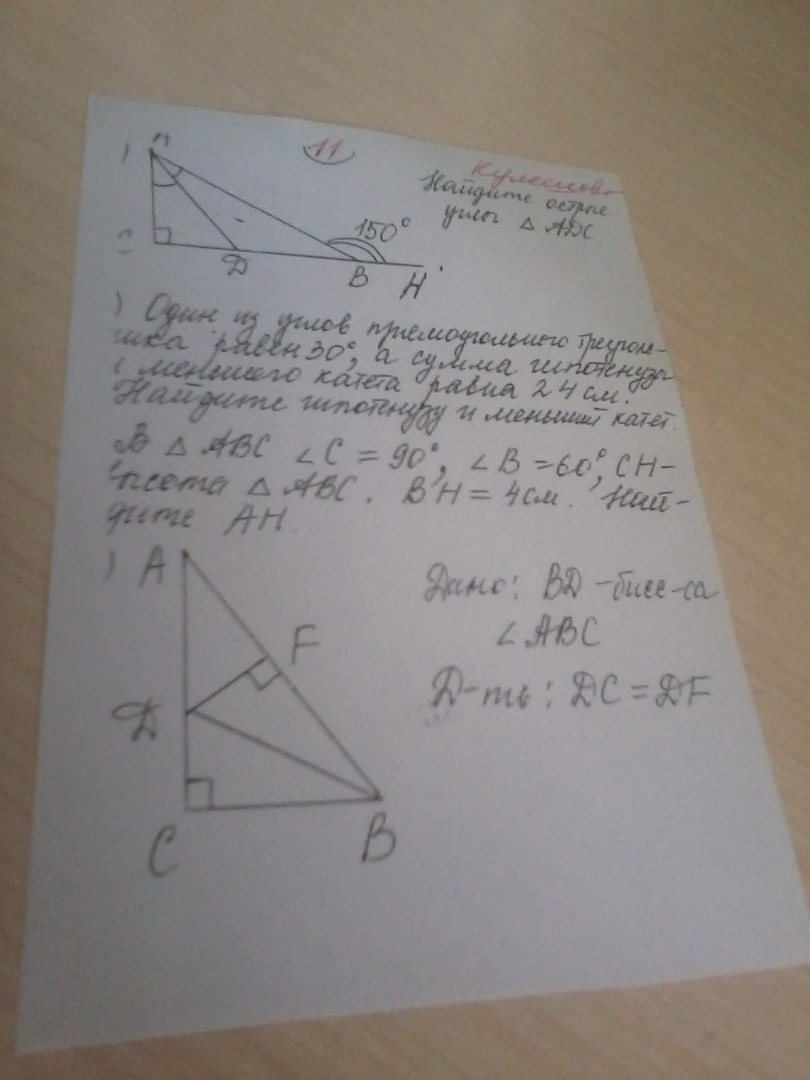 11
Кулешова
Найдите острые
углы △ ADC.
A
)
150°
C
D
B
H
) Один из углов прямоугольного треуголь-
ника равен 30°, а сумма гипотенузы
и меньшего катета равна 24 см.
Найдите гипотенузу и меньший катет.
В △ ABC ∠C = 90°, ∠B = 60°, CH-
высота △ ABC. BH = 4 см. Най-
дите AH.
) A
F
D
C
B
Дано: BD - бисс-са
∠ABC
Д-ть: DC = DF